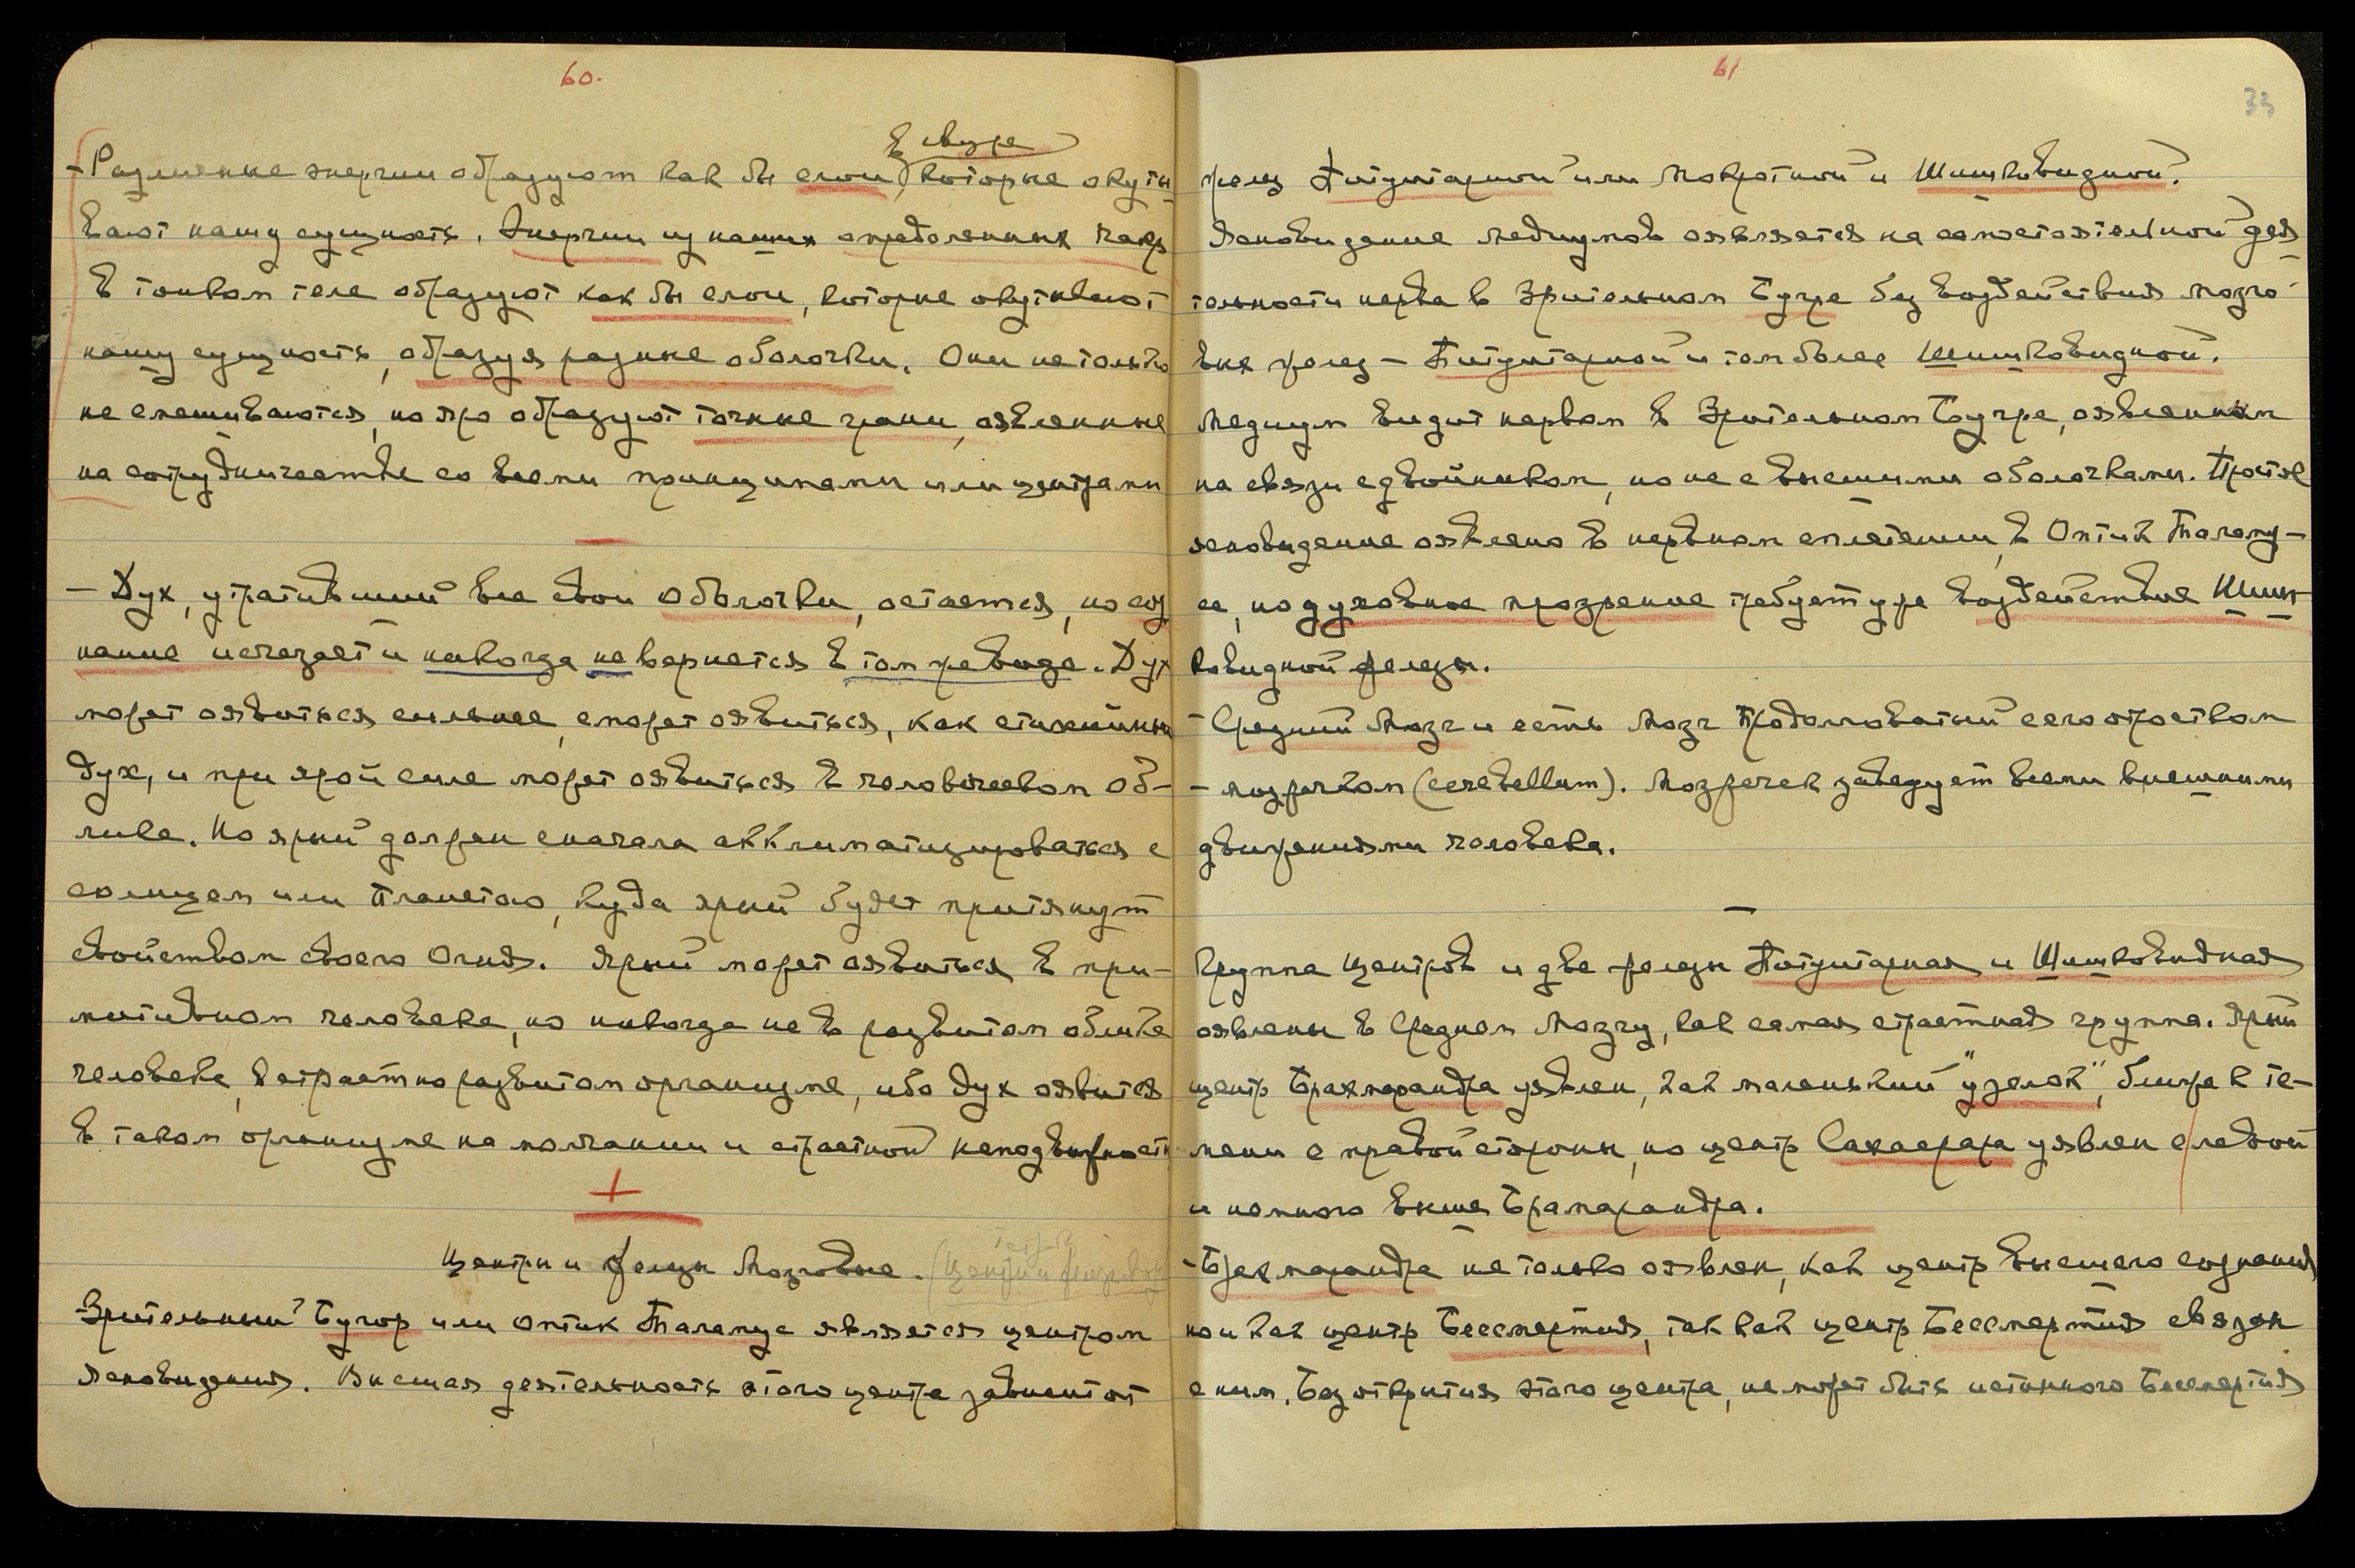 60.
в ауре
- Различные энергии образуют как бы слои, которые окуты-
вают нашу сущность. Энергии из наших определенных чакр
в тонком теле образуют как бы слои, которые окутывают
нашу сущность, образуя разные оболочки. Они не только
не смешиваются, но яро образуют точные грани, оявленные
на сотрудничестве со всеми принципами или центрами
- Дух, утративший все свои оболочки, остается, но соз
нание исчезает и никогда не вернется в том же виде. Дух
может оявиться сильнее, сможет оявиться, как стихийный
дух, и при ярой силе может оявиться в человеческом об-
лике. Но ярый должен сначала акклиматизироваться с
солнцем или планетою, куда ярый будет притянут
свойством своего Огня. Ярый может оявиться в при-
митивном человеке, но никогда не в развитом облике
человека, в страстно развитом организме, ибо дух оявится
в таком организме на молчании и страстной неподвижности
Центры и железы Мозговые. (Центры и железы
- Зрительный Бугор или Оптик Таламус является центром
Ясновидения. Высшая деятельность этого центра зависит от
61
33
желез Питуитарной или Мокротной и Шишковидной.
Ясновидение медиумов оявляется на самостоятельной дея
тельности нерва в Зрительном Бугре без воздействия мозго
вых желез - Питуитарной и тем более Шишковидной.
Медиум видит нервом в Зрительном Бугре, оявленном
на связи с двойником, но не с высшими оболочками. Простое
ясновидение оявлено в нервном сплетении, в Оптик Таламу-
се, но духовное прозрение требует уже воздействие Шиш-
ковидной железы.
- Средний Мозг и есть Мозг Продолговатый с его отростком
- мозжечком (cerebellum). Мозжечек заведует всеми внешними
движениями человека.
Группа центров и две железы Питуитарная и Шишковидная
оявлены в Среднем Мозгу, как самая страстная группа. Ярый
центр Брахмарандра уявлен, как маленький "узелок", ближе к те-
мени с правой стороны, но центр Сахасрара уявлен с левой
и немного выше Брамарандра.
- Брахмарандра не только оявлен, как центр высшего сознания
но и как центр Бессмертия, так как центр Бессмертия связан
с ним. Без открытия этого центра, не может быть истинного Бессмертия